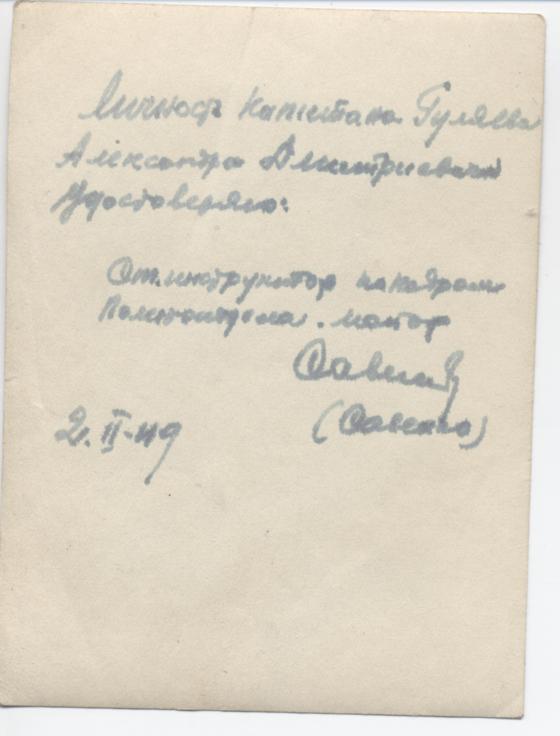 Личность капитана Гуляева
Александра Дмитриевича
Удостоверяю:
Ст. инструктор по кадрам
Политотдела. майор
2. II-49